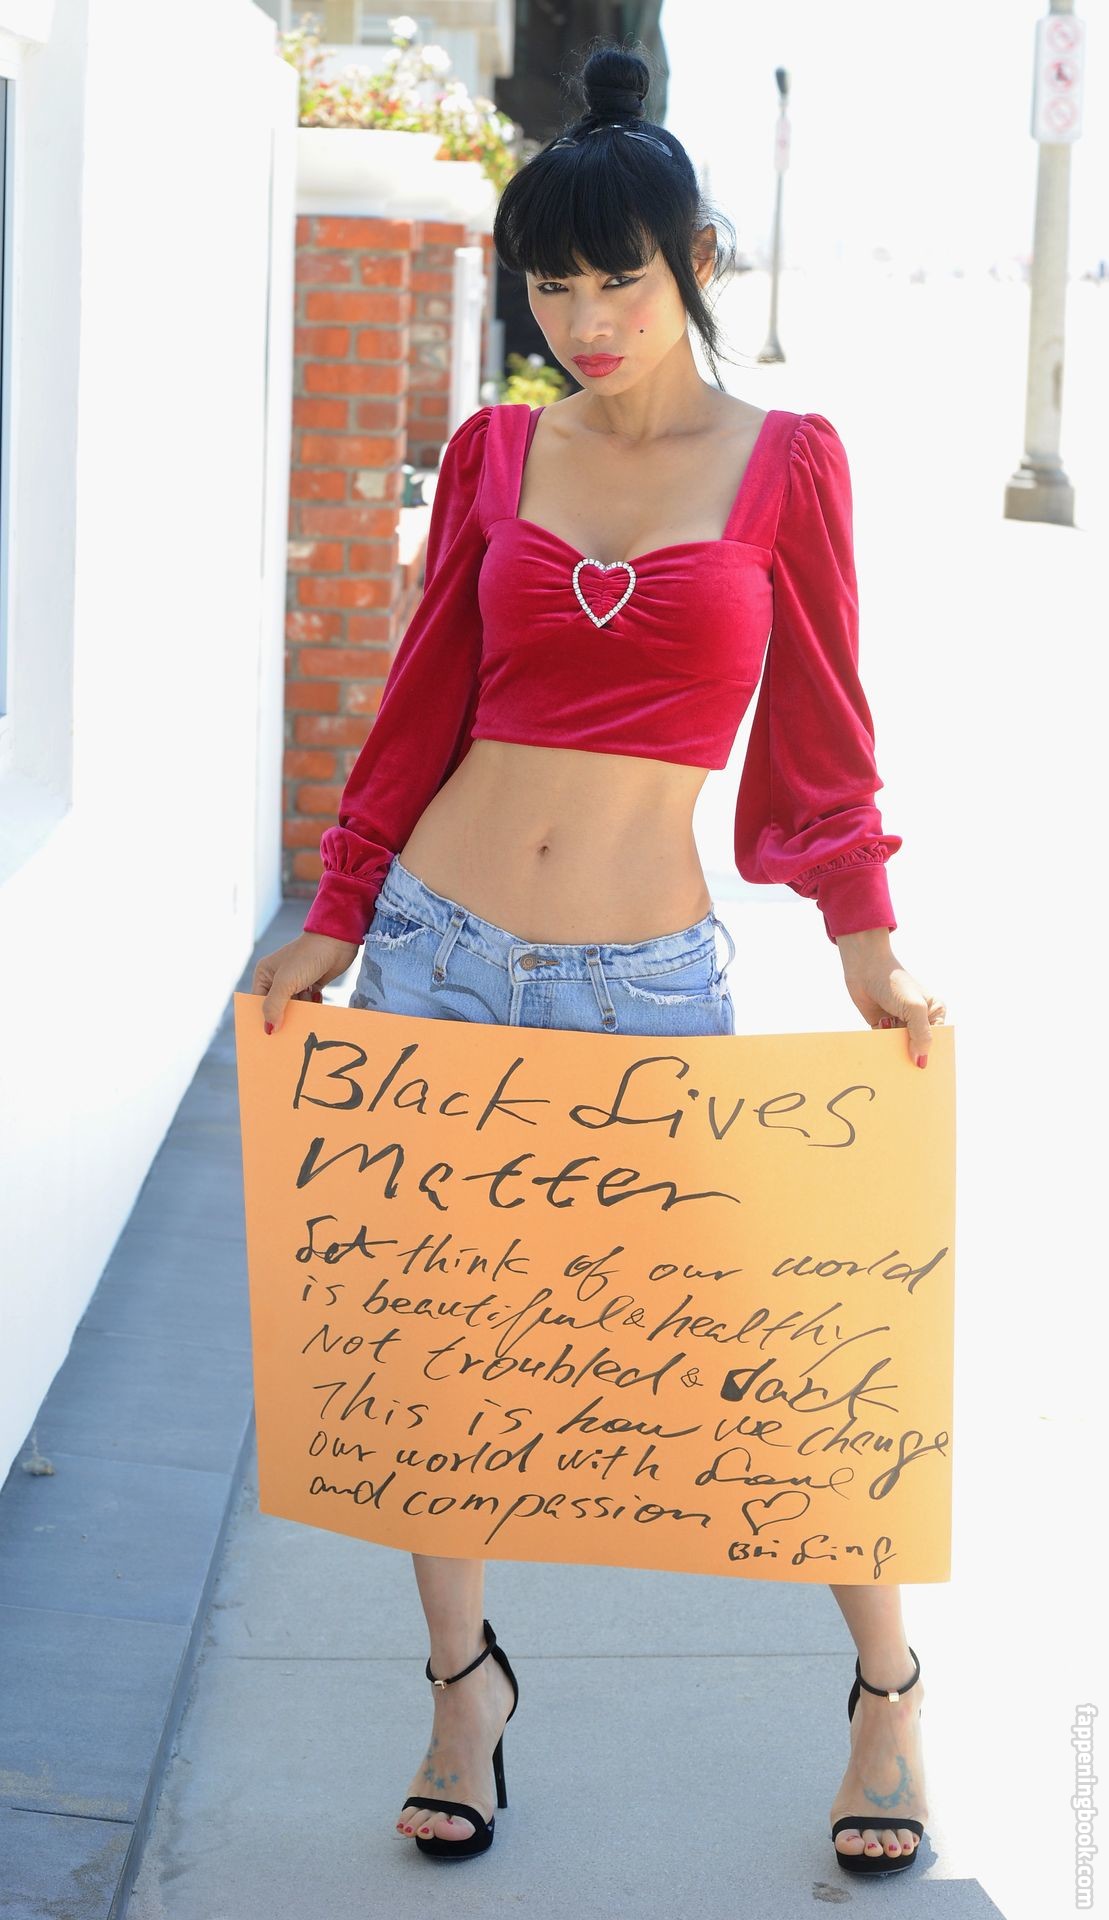 Black Lives
Matter
Let think of our world
is beautiful & healthy
Not troubled & dark
This is how we change
our world with Love
and compassion ♡
Bai Ling
fappeningbook.com